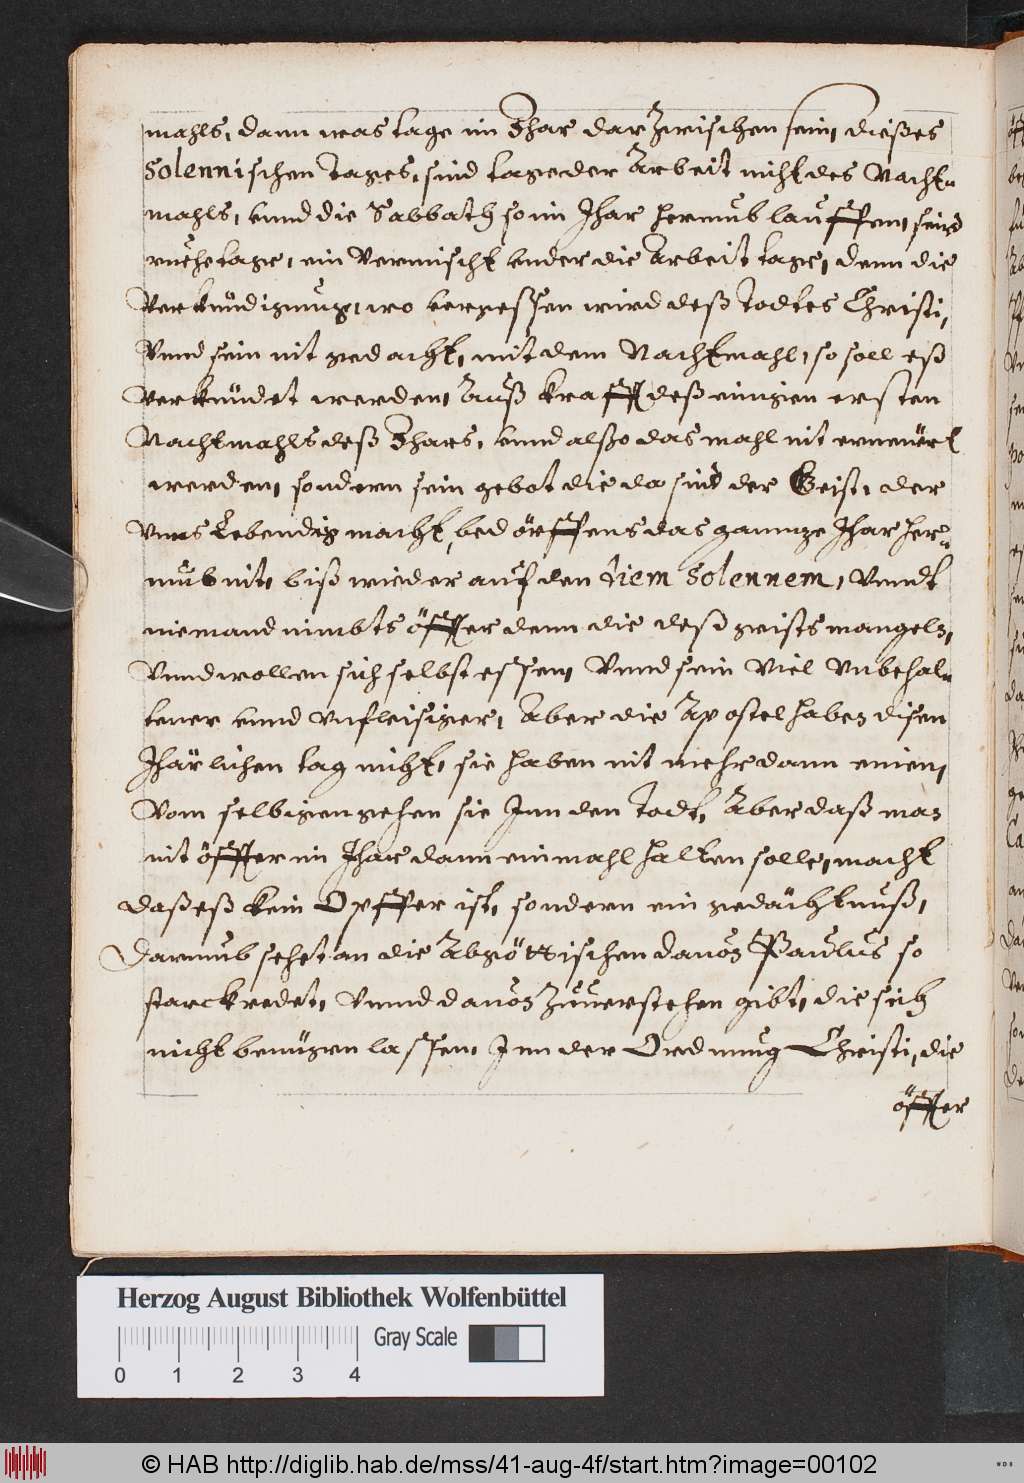 mahls, dann was tage im Jhar darzwischen sein, dießes
Solennischen tages, sind tage der Arbeit nicht des Nacht-
mahls, vnnd die Sabbath so im Jhar herumb lauffen, seind
ruehe tage, ein vermischt vnder die Arbeit tage, denn die
Verkündigung, wo vergessen wird deß Todtes Christi,
Vnnd sein nit gedacht, mit dem Nachtmahl, so soll eß
verkündet werden, Auß krafft deß einigen ersten
Nachtmahls deß Jhars, vnnd alßo das mahl nit ernewert
werden, sondern sein gebot die da sind der Geist, der
Vnns Lebendig macht, bedörffens das gannze Jhar her-
umb nit, biß wieder auf den diem Solennem, Vnndt
niemand nimbts öffter denn die deß geists mangeln,
Vnnd wollen sich selbst essen, Vnnd sein viel vnbehal-
tener vnnd vnfleisiger, Aber die Apostel haben disen
Jhärlichen tag nicht, sie haben nit mehr dann einen,
Vom selbigen gehen sie Inn den Todt, Aber daß man
nit öffter im Jhar dann ein mahl halten solle, macht
daß eß kein Opffer ist, sondern ein gedächtnuß,
Darumb sehet an die Abgöttischen dauon Paulus so
starck redet, Vnnd dauon zuuerstehen gibt, die sich
nicht benügen lassen, Inn der Ordnung Christi, die
öffter
Herzog August Bibliothek Wolfenbüttel
Gray Scale
0 1 2 3 4
© HAB http://diglib.hab.de/mss/41-aug-4f/start.htm?image=00102